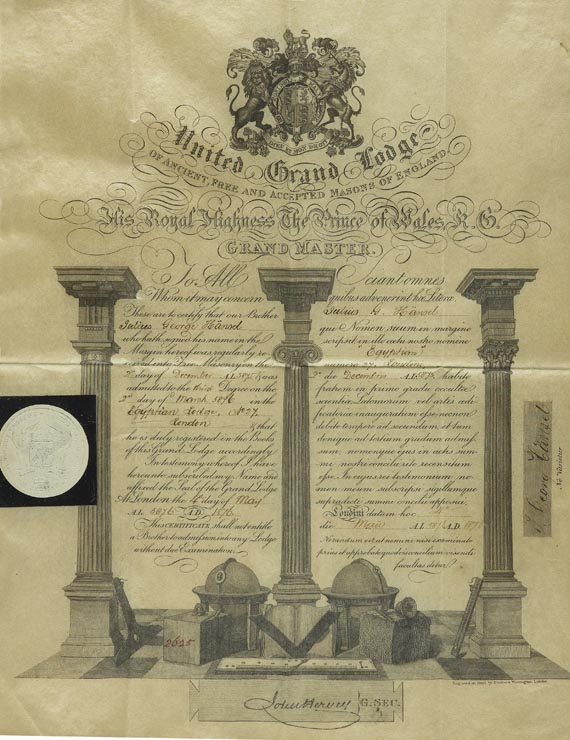 DIEU ET MON DROIT
United Grand Lodge
OF ANCIENT, FREE AND ACCEPTED MASONS OF ENGLAND
His Royal Highness The Prince of Wales, K.G.
GRAND MASTER.
To All
Whom it may concern
These are to certify that our Brother
Julius George Hänsel
who hath signed his name on the
Margin hereof was regularly re-
ceived into Free Masonry on the
day of December A.L. was
admitted to the third Degree on the
2d day of March 5876 in the
Egyptian Lodge, No 27
London & that
he is duly registered in the Books
of this Grand Lodge accordingly
In testimony whereof I have
hereunto subscribed my Name and
affixed the Seal of the Grand Lodge
At London the day of May
A.L. 5876 A.D. 1876
This CERTIFICATE shall not entitle
a Brother to admission into any Lodge
without due Examination.
Sciant omnes
quibus advenerint hæ Literæ
Julius G. Hänsel
qui Nomen suum in margine
scripsit in die actu nostro nomine
"Egyptian"
27 London
die December A.L. habitu
fratrem in primo gradu occultæ
scientiæ Latomorum vel artis ædi-
ficatoriæ inauguratum esse necnon
debito tempore ad secundum et tum
denique ad tertium gradum admis-
sum nomenque ejus in actis sum-
mi nostri concilii rite recensitum
esse. In cujus rei testimonium no-
men meum subscripsi sigillumque
supradicti summi concilii apposui
Londini datum hoc
die Maii A.L. A.D. 1876
Notandum est at nemine nisi examinato
prius et approbato quod concilium visendi
facultas detur
Ne Varietur
2645
John Hervey G. SEC.